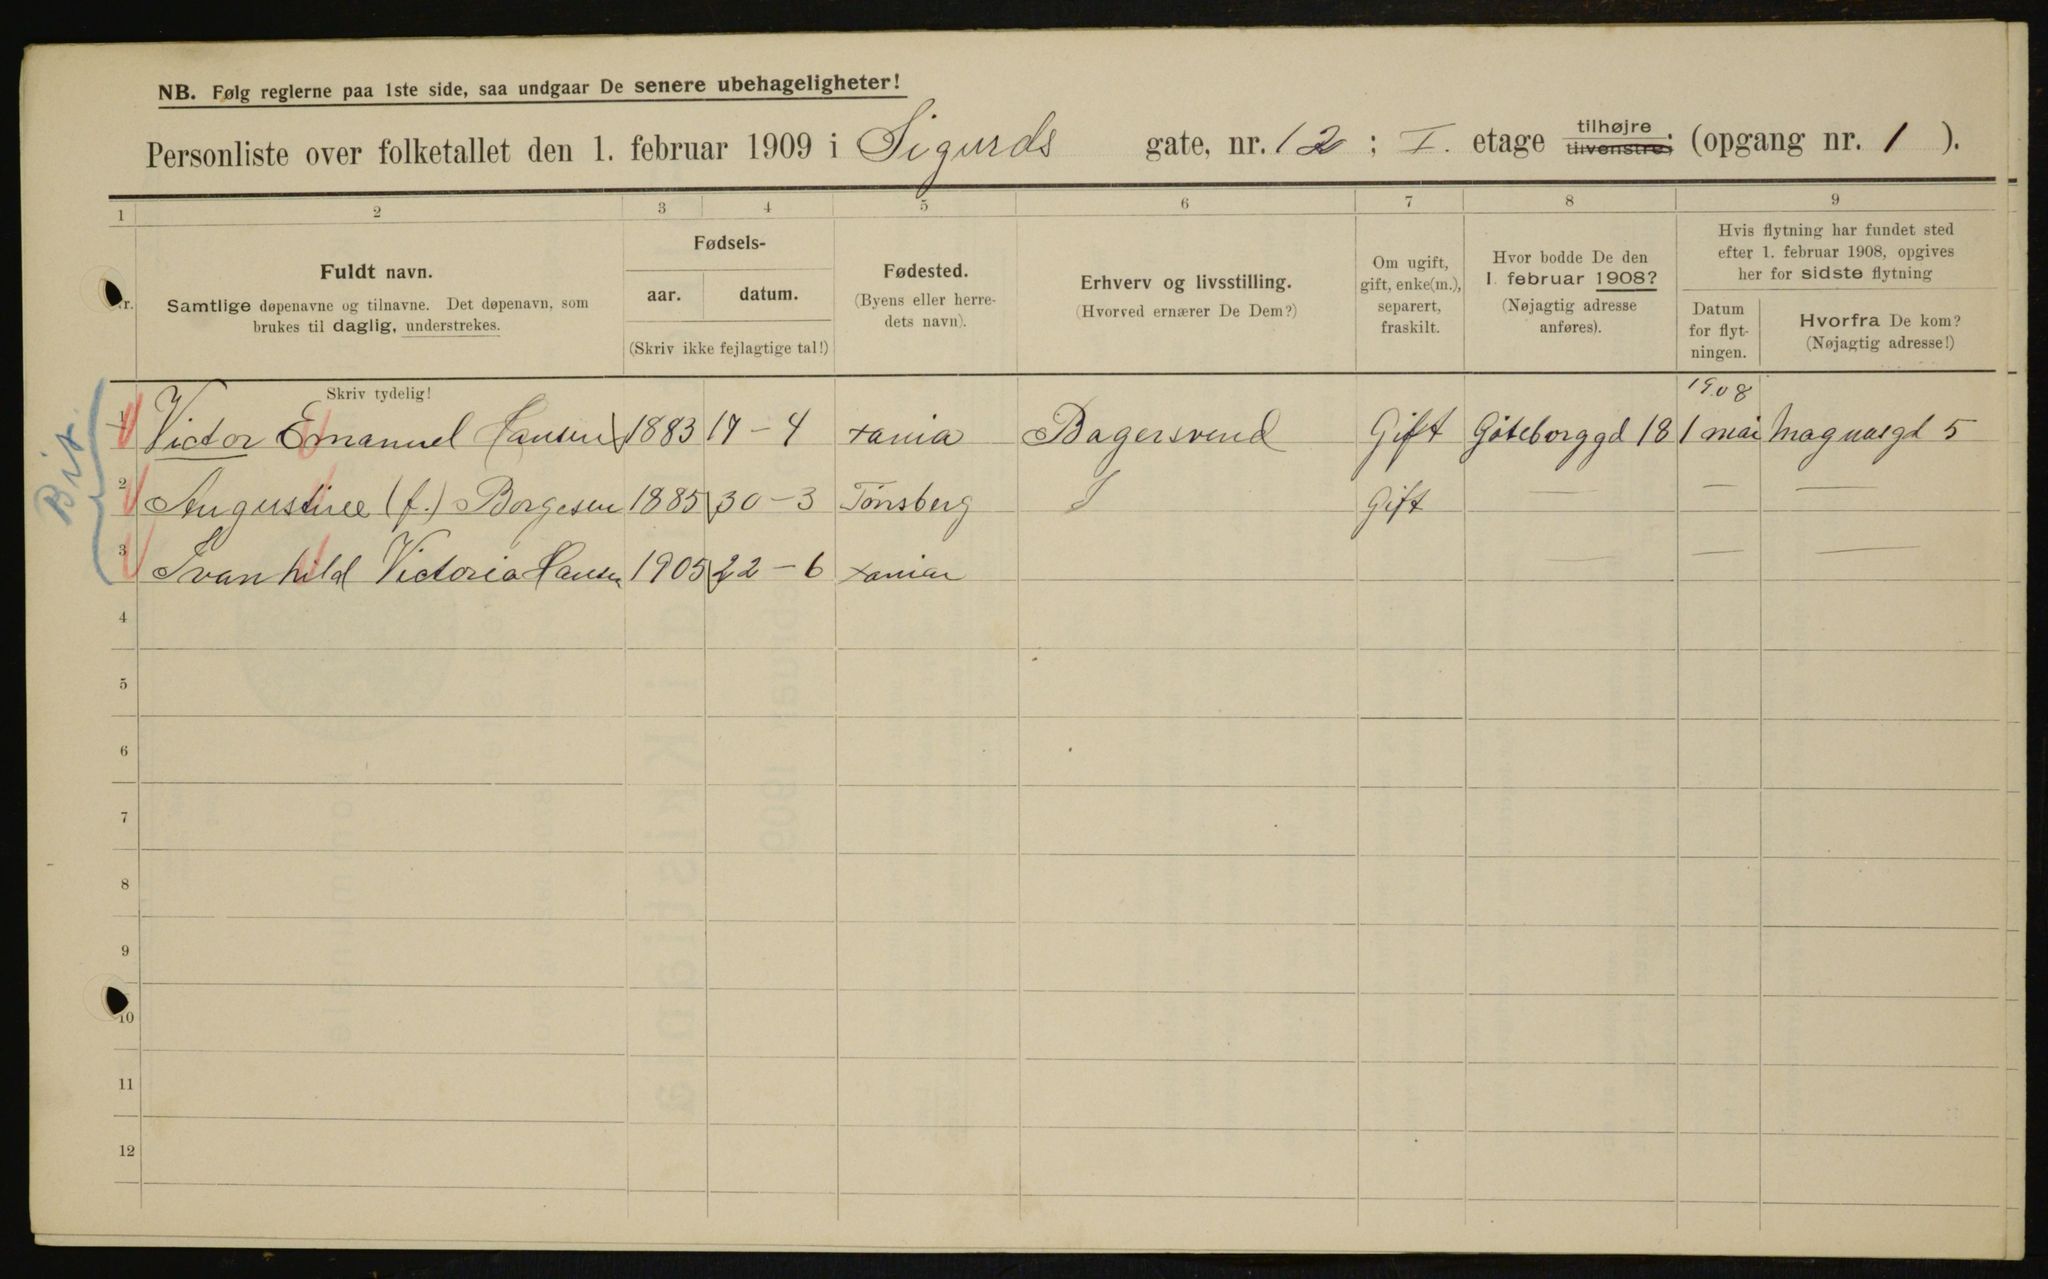 NB. Følg reglerne paa 1ste side, saa undgaar De senere ubehageligheter!
Personliste over folketallet den 1. februar 1909 i Sigurds gate, nr. 12 ; I. etage tilhøjre, tilvenstre, (opgang nr. 1 ).
1 2 3 4 5 6 7 8 9
Nr.
Fuldt navn.
Samtlige døpenavne og tilnavne. Det døpenavn, som
brukes til daglig, understrekes.
Fødsels-
aar. datum.
(Skriv ikke fejlagtige tal!)
Fødested.
(Byens eller herre-
dets navn).
Erhverv og livsstilling.
(Hvorved ernærer De Dem?)
Om ugift,
gift, enke(m.),
separert,
fraskilt.
Hvor bodde De den
1. februar 1908?
(Nøjagtig adresse
anføres).
Hvis flytning har fundet sted
efter 1. februar 1908, opgives
her for sidste flytning
Datum
for flyt-
ningen.
Hvorfra De kom?
(Nøjagtig adresse!)
Skriv tydelig!
1908
1 Victor Emanuel Hansen 1883 17 – 4 Xania Bagersvend Gift Göteborggd 18 1 mai Magnusgd 5
2 Augustine (f.) Borgesen 1885 30 – 3 Tönsberg Gift — — —
3 Svanhild Victoria Hansen 1905 22 – 6 Xania — — —
4
5
6
7
8
9
10
11
12